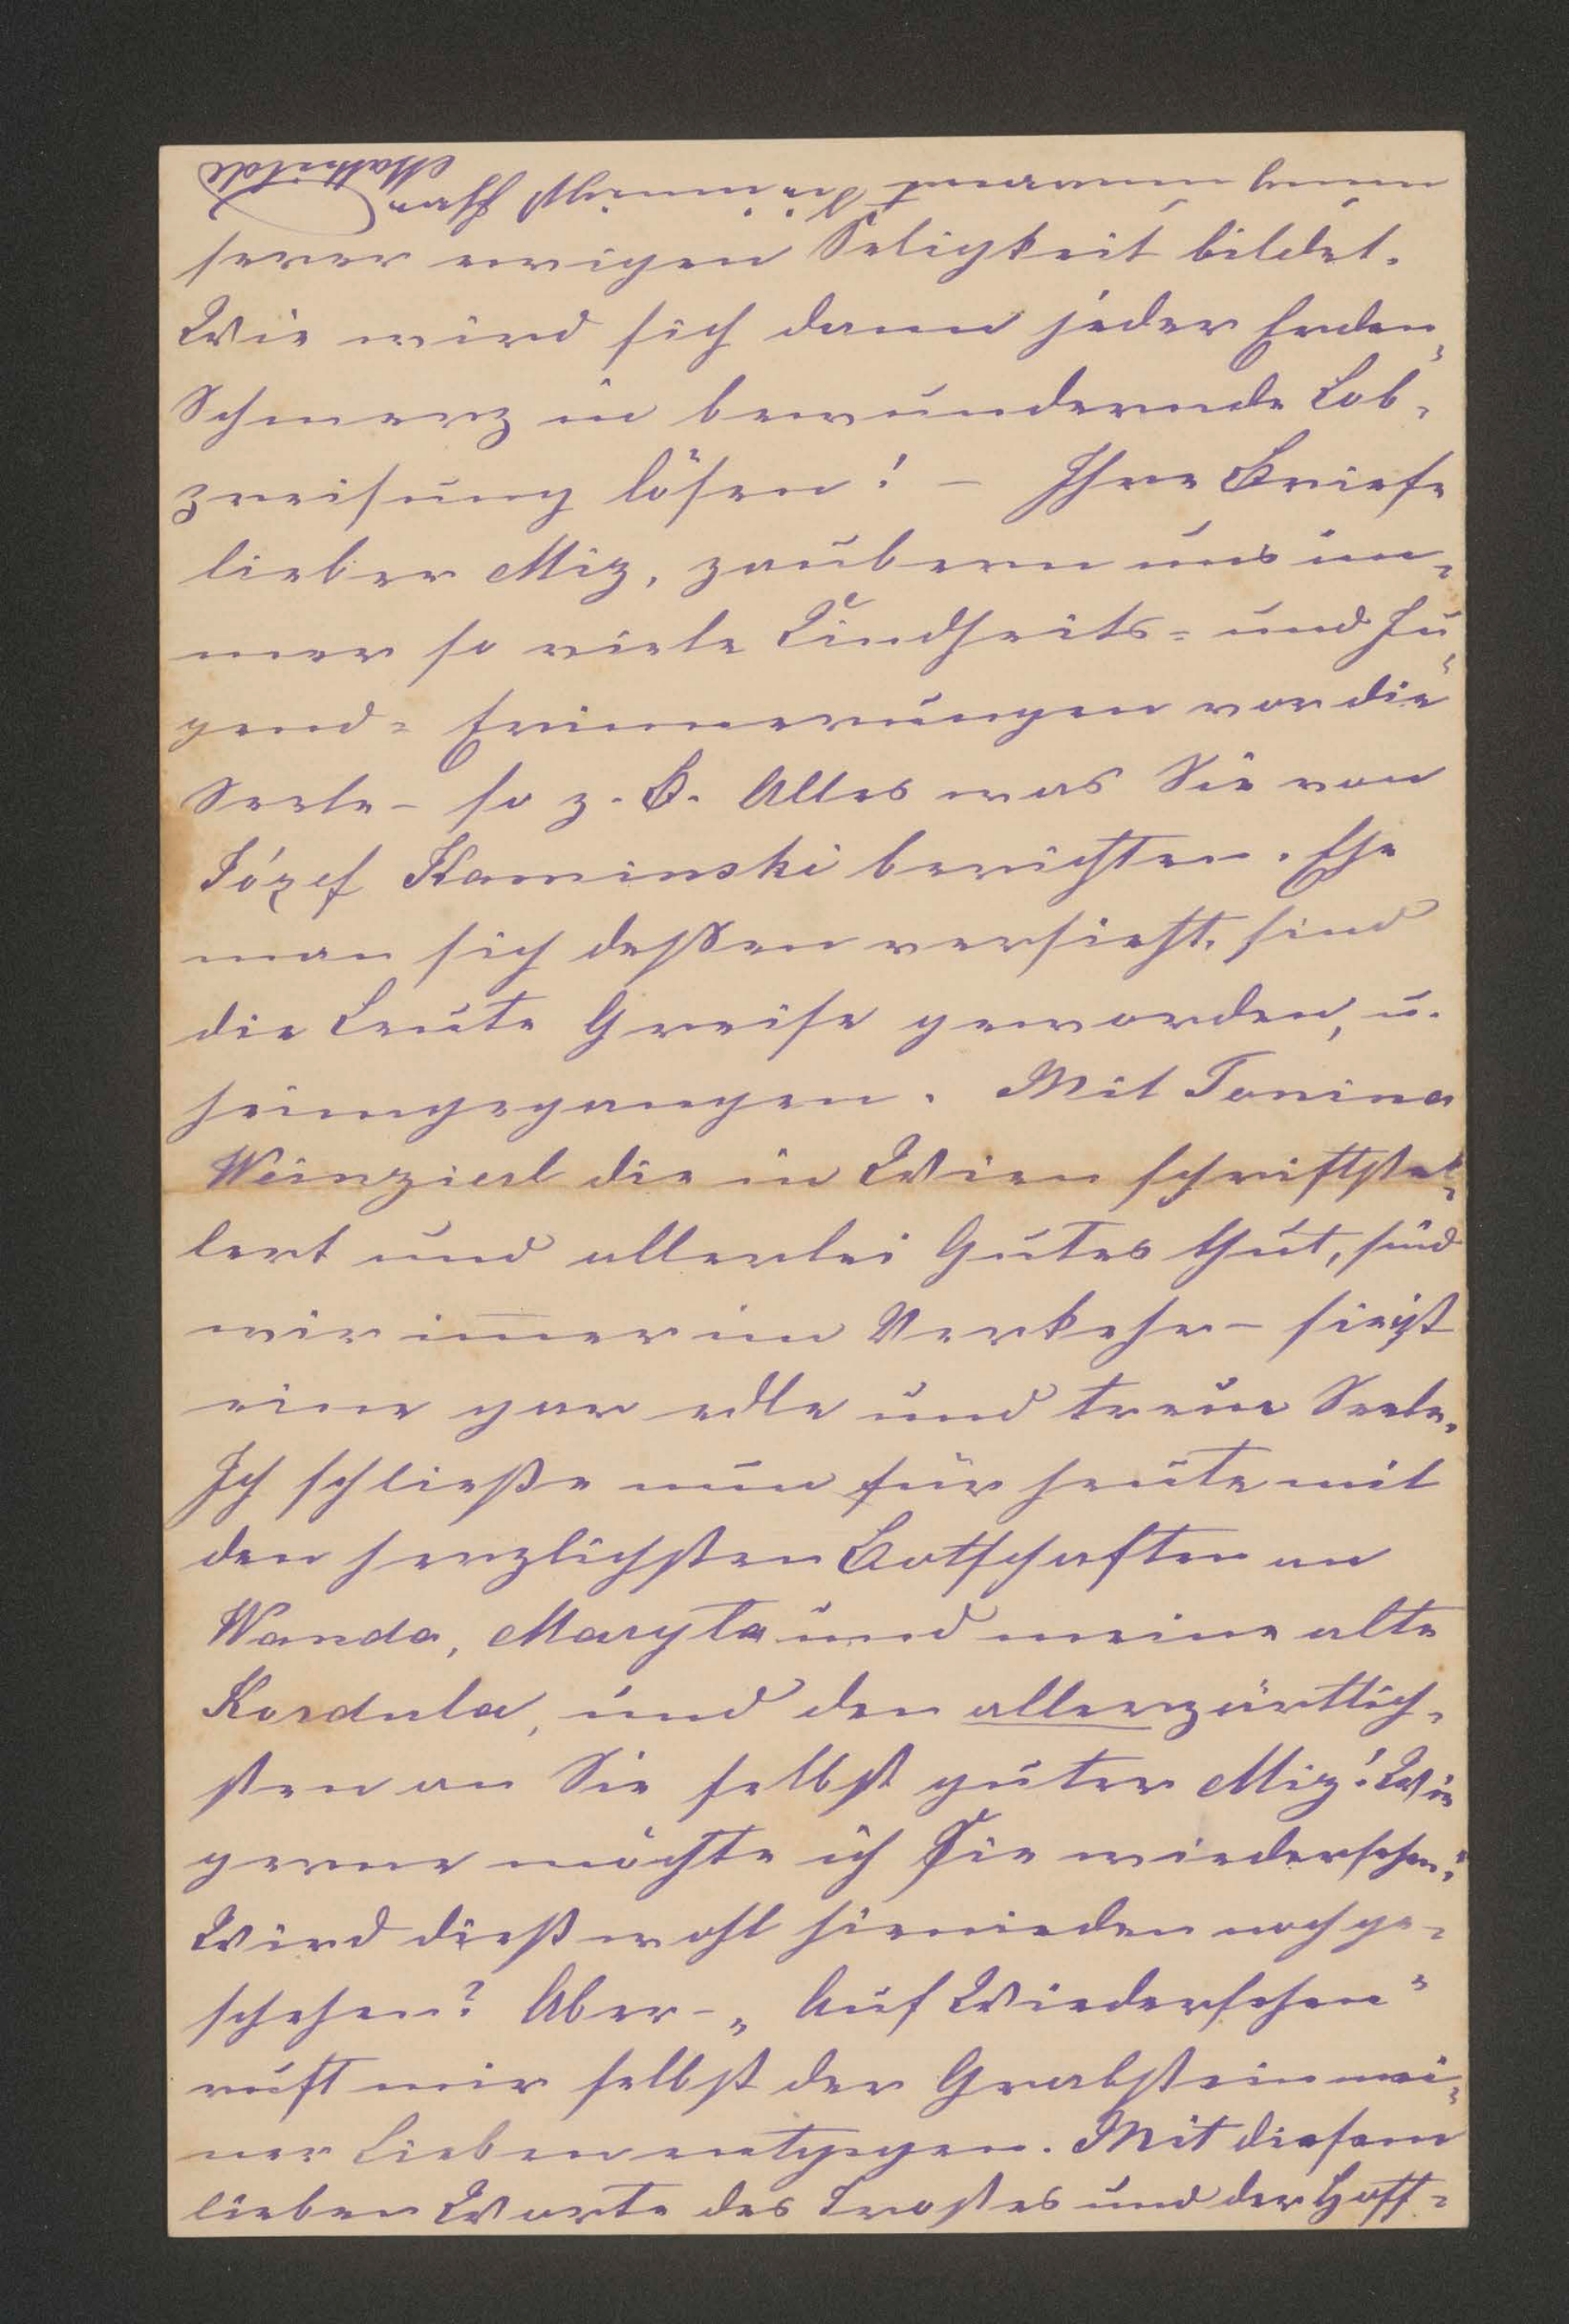 serer ewigen Seligkeit bildet.
Wie wird sich dann jeder Erden-
Schmerz in bewundernde Lob-
preisung lösen! – Ihre Briefe
lieber Miz, zaubern uns im-
mer so viele Kindheits- und Ju-
gend- Erinnerungen vor die
Seele – so z. B. Alles was Sie von
Józef Kaminski berichten. Ehe
man sich deßen versieht, sind
die Leute Greise geworden, u.
heimgegangen. Mit Tonina
Weinzierl die in Wien schriftstel-
lert und allerlei Gutes thut, sind
wir immer im Verkehr – sie ist
eine gar edle und treue Seele.
Ich schließe nun für heute mit
den herzlichsten Botschaften an
Wanda, Maryla und meine alte
Kordula, und den allerzärtlich-
sten an Sie selbst guter Miz! Wie
gerne möchte ich Sie wiedersehen!
Wird dieß wohl hienieden noch ge-
schehen? Aber – „Auf Wiedersehen"
ruft mir selbst der Grabstein mei-
ner Lieben entgegen. Mit diesem
lieben Worte des Trostes und der Hoff-
nung umarmt Sie innigst Ihre
Mathilde